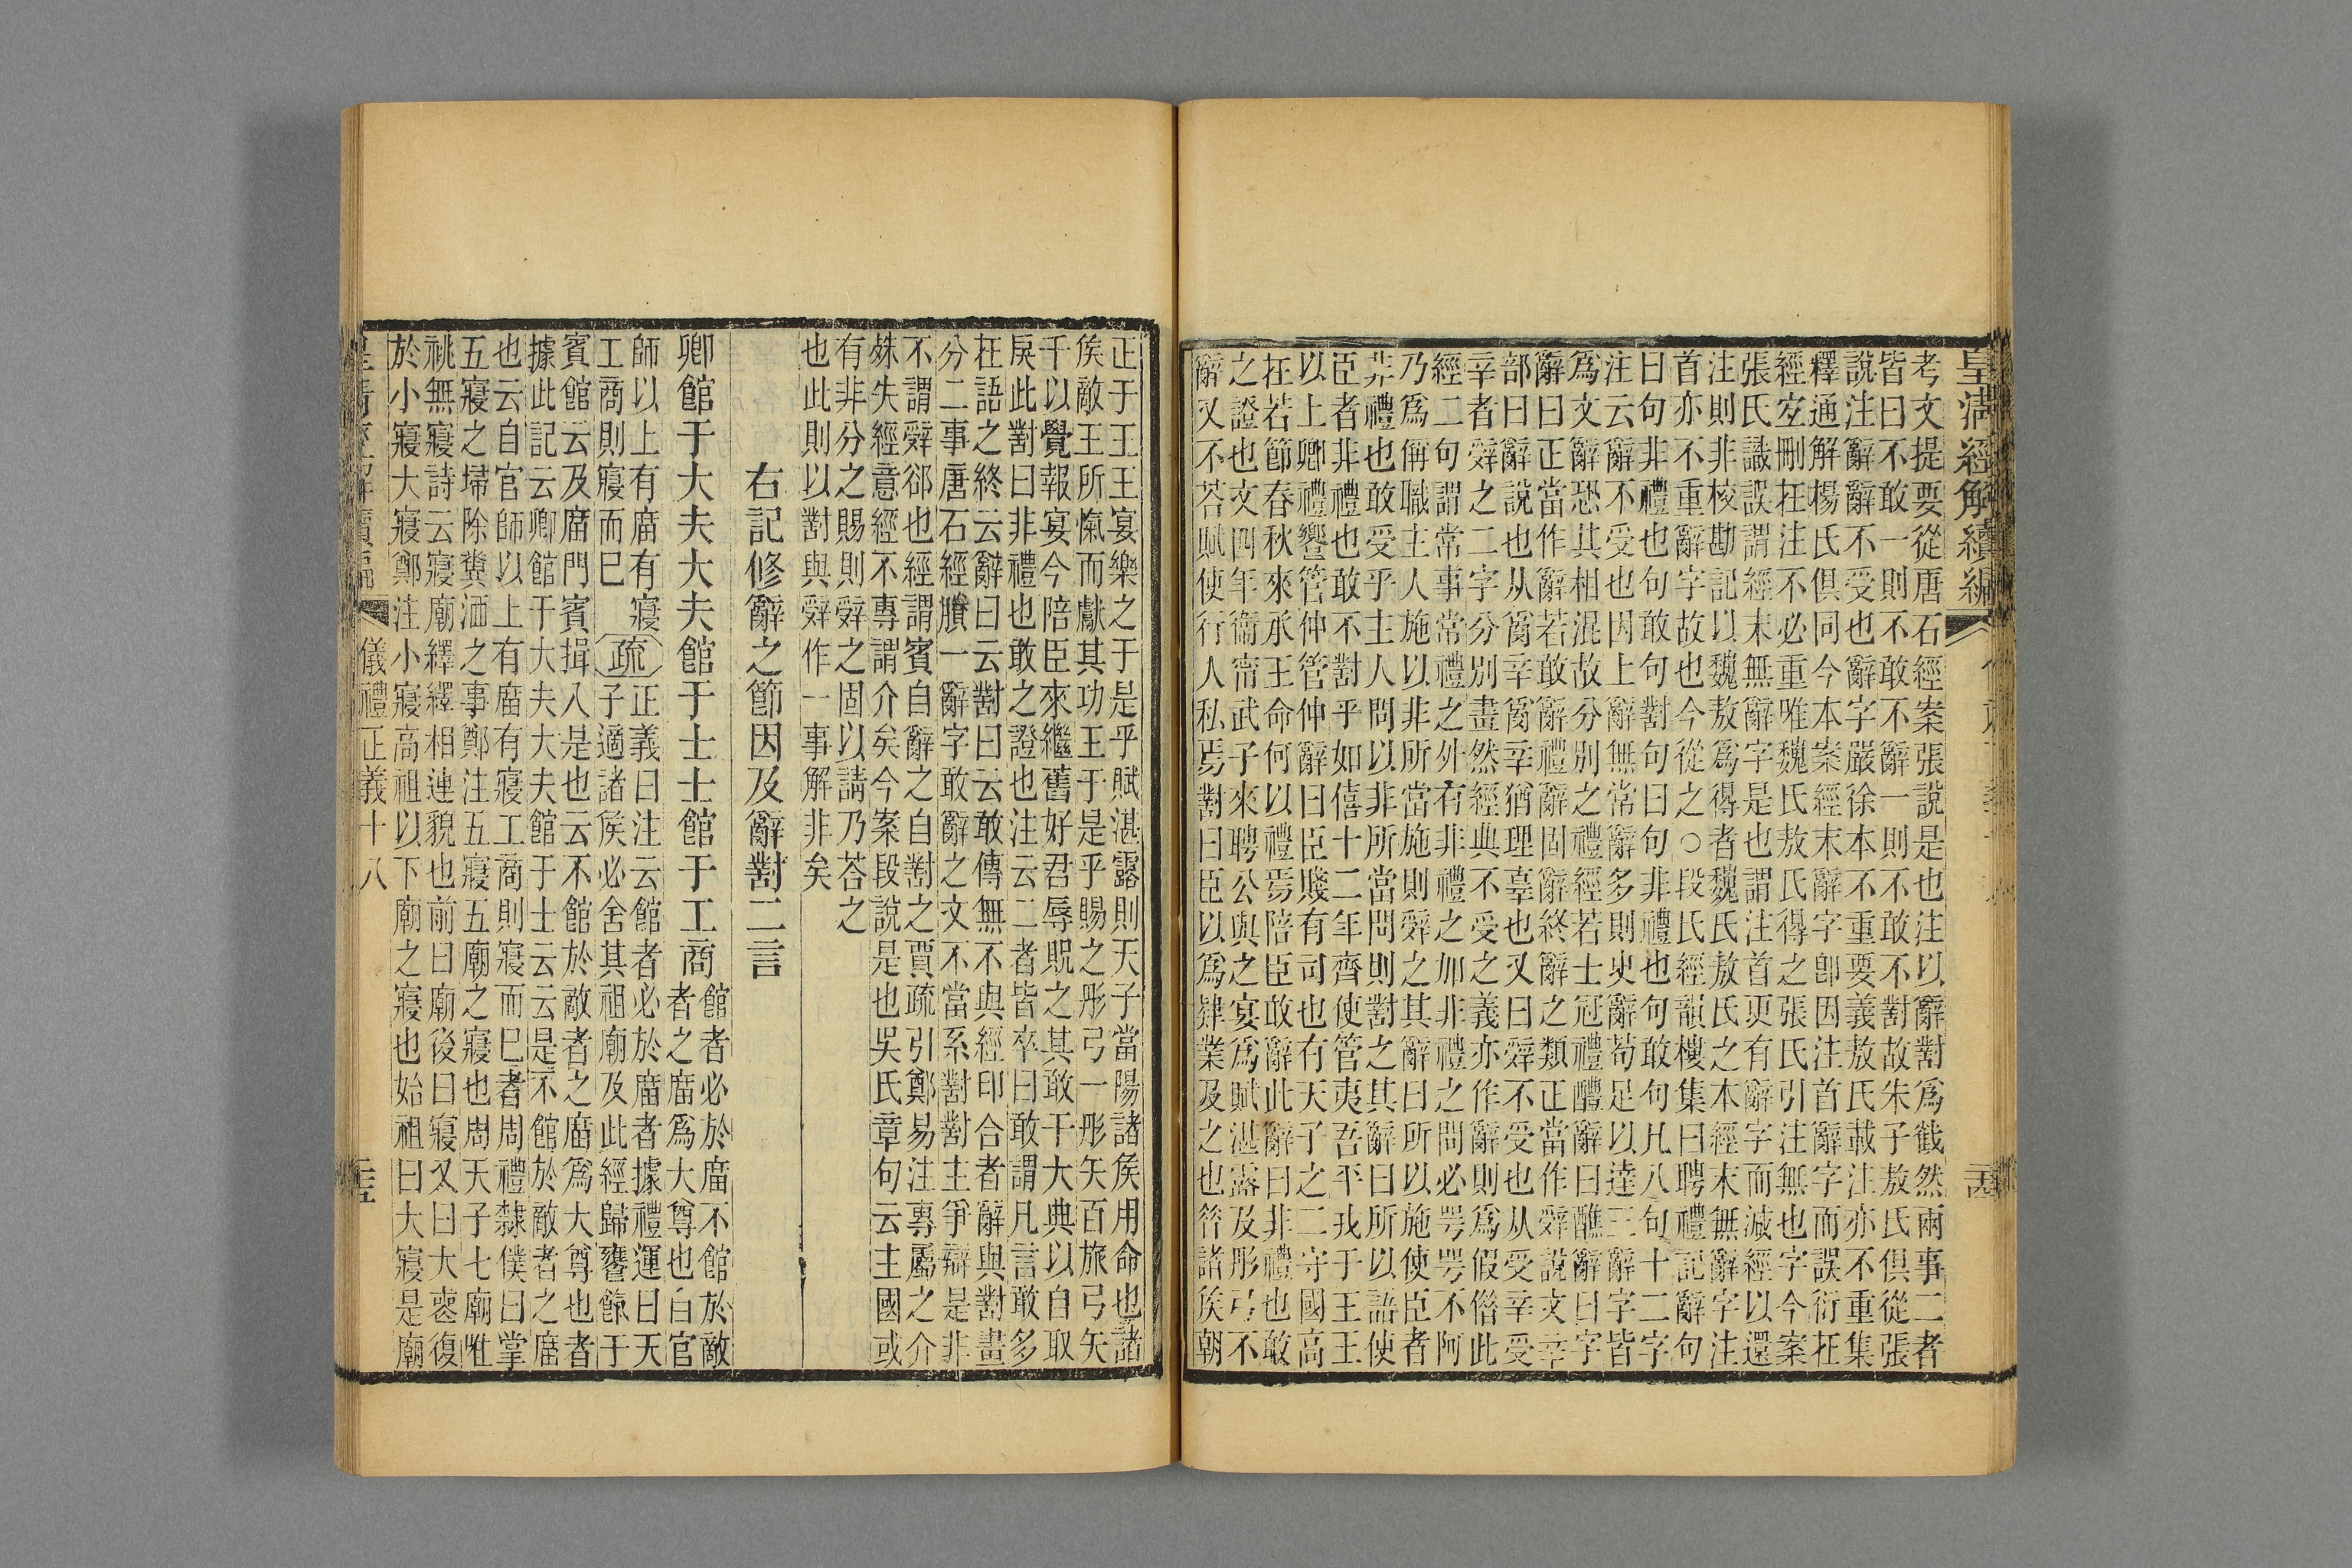 皇清經解續編
考文提要從唐石經案張說是也注以辭對爲截然兩事二者
皆曰不敢一則不敢不辭一則不敢不對故朱子敖氏俱從張
說注辭辭不受也辭字嚴徐本不重要義敖氏載注亦不重集
釋通解楊氏俱同今本案經末辭字卽因注首辭字而誤衍在
經宐刪在注不必重唯魏氏敖氏得之張氏引注無也字今案
張氏識誤謂經末無辭字是也謂注首更有辭字而減經以還
注則非校勘記以魏敖爲得者魏氏敖氏之本經末無辭字注
首亦不重辭字故也今從之○段氏經韻樓集曰聘禮記辭句
曰句非禮也句敢句對句曰句非禮也句敢句凡八句十二字
注云辭不受也因上辭無常辭多則史辭苟足以達三辭字皆
爲文辭恐其相混故分別之禮經若士冠禮醴辭曰醮辭曰字
辭曰正當作辭若敢辭禮辭固辭終辭之類正當作辤說文辛
部曰辭說也从𤔔辛𤔔辛猶理辜也又曰辤不受也从受辛受
辛者辤之二字分別畫然經典不受之義亦作辭則爲假借此
經二句謂常事常禮之外有非禮之加非禮之問必咢咢不阿
乃爲偁職主人施以非所當施則辤之其辭曰所以施使臣者
非禮也敢受乎主人問以非所當問則對之其辭曰所以語使
臣者非禮也敢不對乎如僖十二年齊使管夷吾平戎于王王
以上卿禮饗管仲管仲辭曰臣賤有司也有天子之二守國高
在若節春秋來承王命何以禮焉陪臣敢辭此辭曰非禮也敢
之證也文四年衞甯武子來聘公與之宴爲賦湛露及彤弓不
辭又不荅賦使行人私焉對曰臣以爲肄業及之也昔諸矦朝
正于王王宴樂之于是乎賦湛露則天子當陽諸矦用命也諸
矦敵王所愾而獻其功王于是乎賜之彤弓一彤矢百旅弓矢
千以覺報宴今陪臣來繼舊好君辱貺之其敢干大典以自取
戾此對曰非禮也敢之證也注云二者皆卒曰敢謂凡言敢多
在語之終云辭曰云對曰云敢傳無不與經印合者辭與對畫
分二事唐石經賸一辭字敢辭之文不當系對對主爭辯是非
不謂辤郤也經謂賓自辭之自對之賈疏引鄭易注專屬之介
殊失經意經不專謂介矣今案段說是也吳氏章句云主國或
有非分之賜則辤之固以請乃荅之
也此則以對與辤作一事解非矣
右記修辭之節因及辭對二言
卿館于大夫大夫館于士士館于工商館者必於廟不館於敵
者之廟爲大尊也自官
師以上有廟有寢
工商則寢而已
疏
正義曰注云館者必於廟者據禮運曰天
子適諸矦必舍其祖廟及此經歸饔餼于
賓館云及廟門賓揖入是也云不館於敵者之廟爲大尊也者
據此記云卿館于大夫大夫館于士云云是不館於敵者之廟
也云自官師以上有廟有寢工商則寢而已者周禮隸僕曰掌
五寢之埽除糞洒之事鄭注五寢五廟之寢也周天子七廟唯
祧無寢詩云寢廟繹繹相連貌也前曰廟後曰寢又曰大喪復
於小寢大寢鄭注小寢高祖以下廟之寢也始祖曰大寢是廟
儀禮正義十八